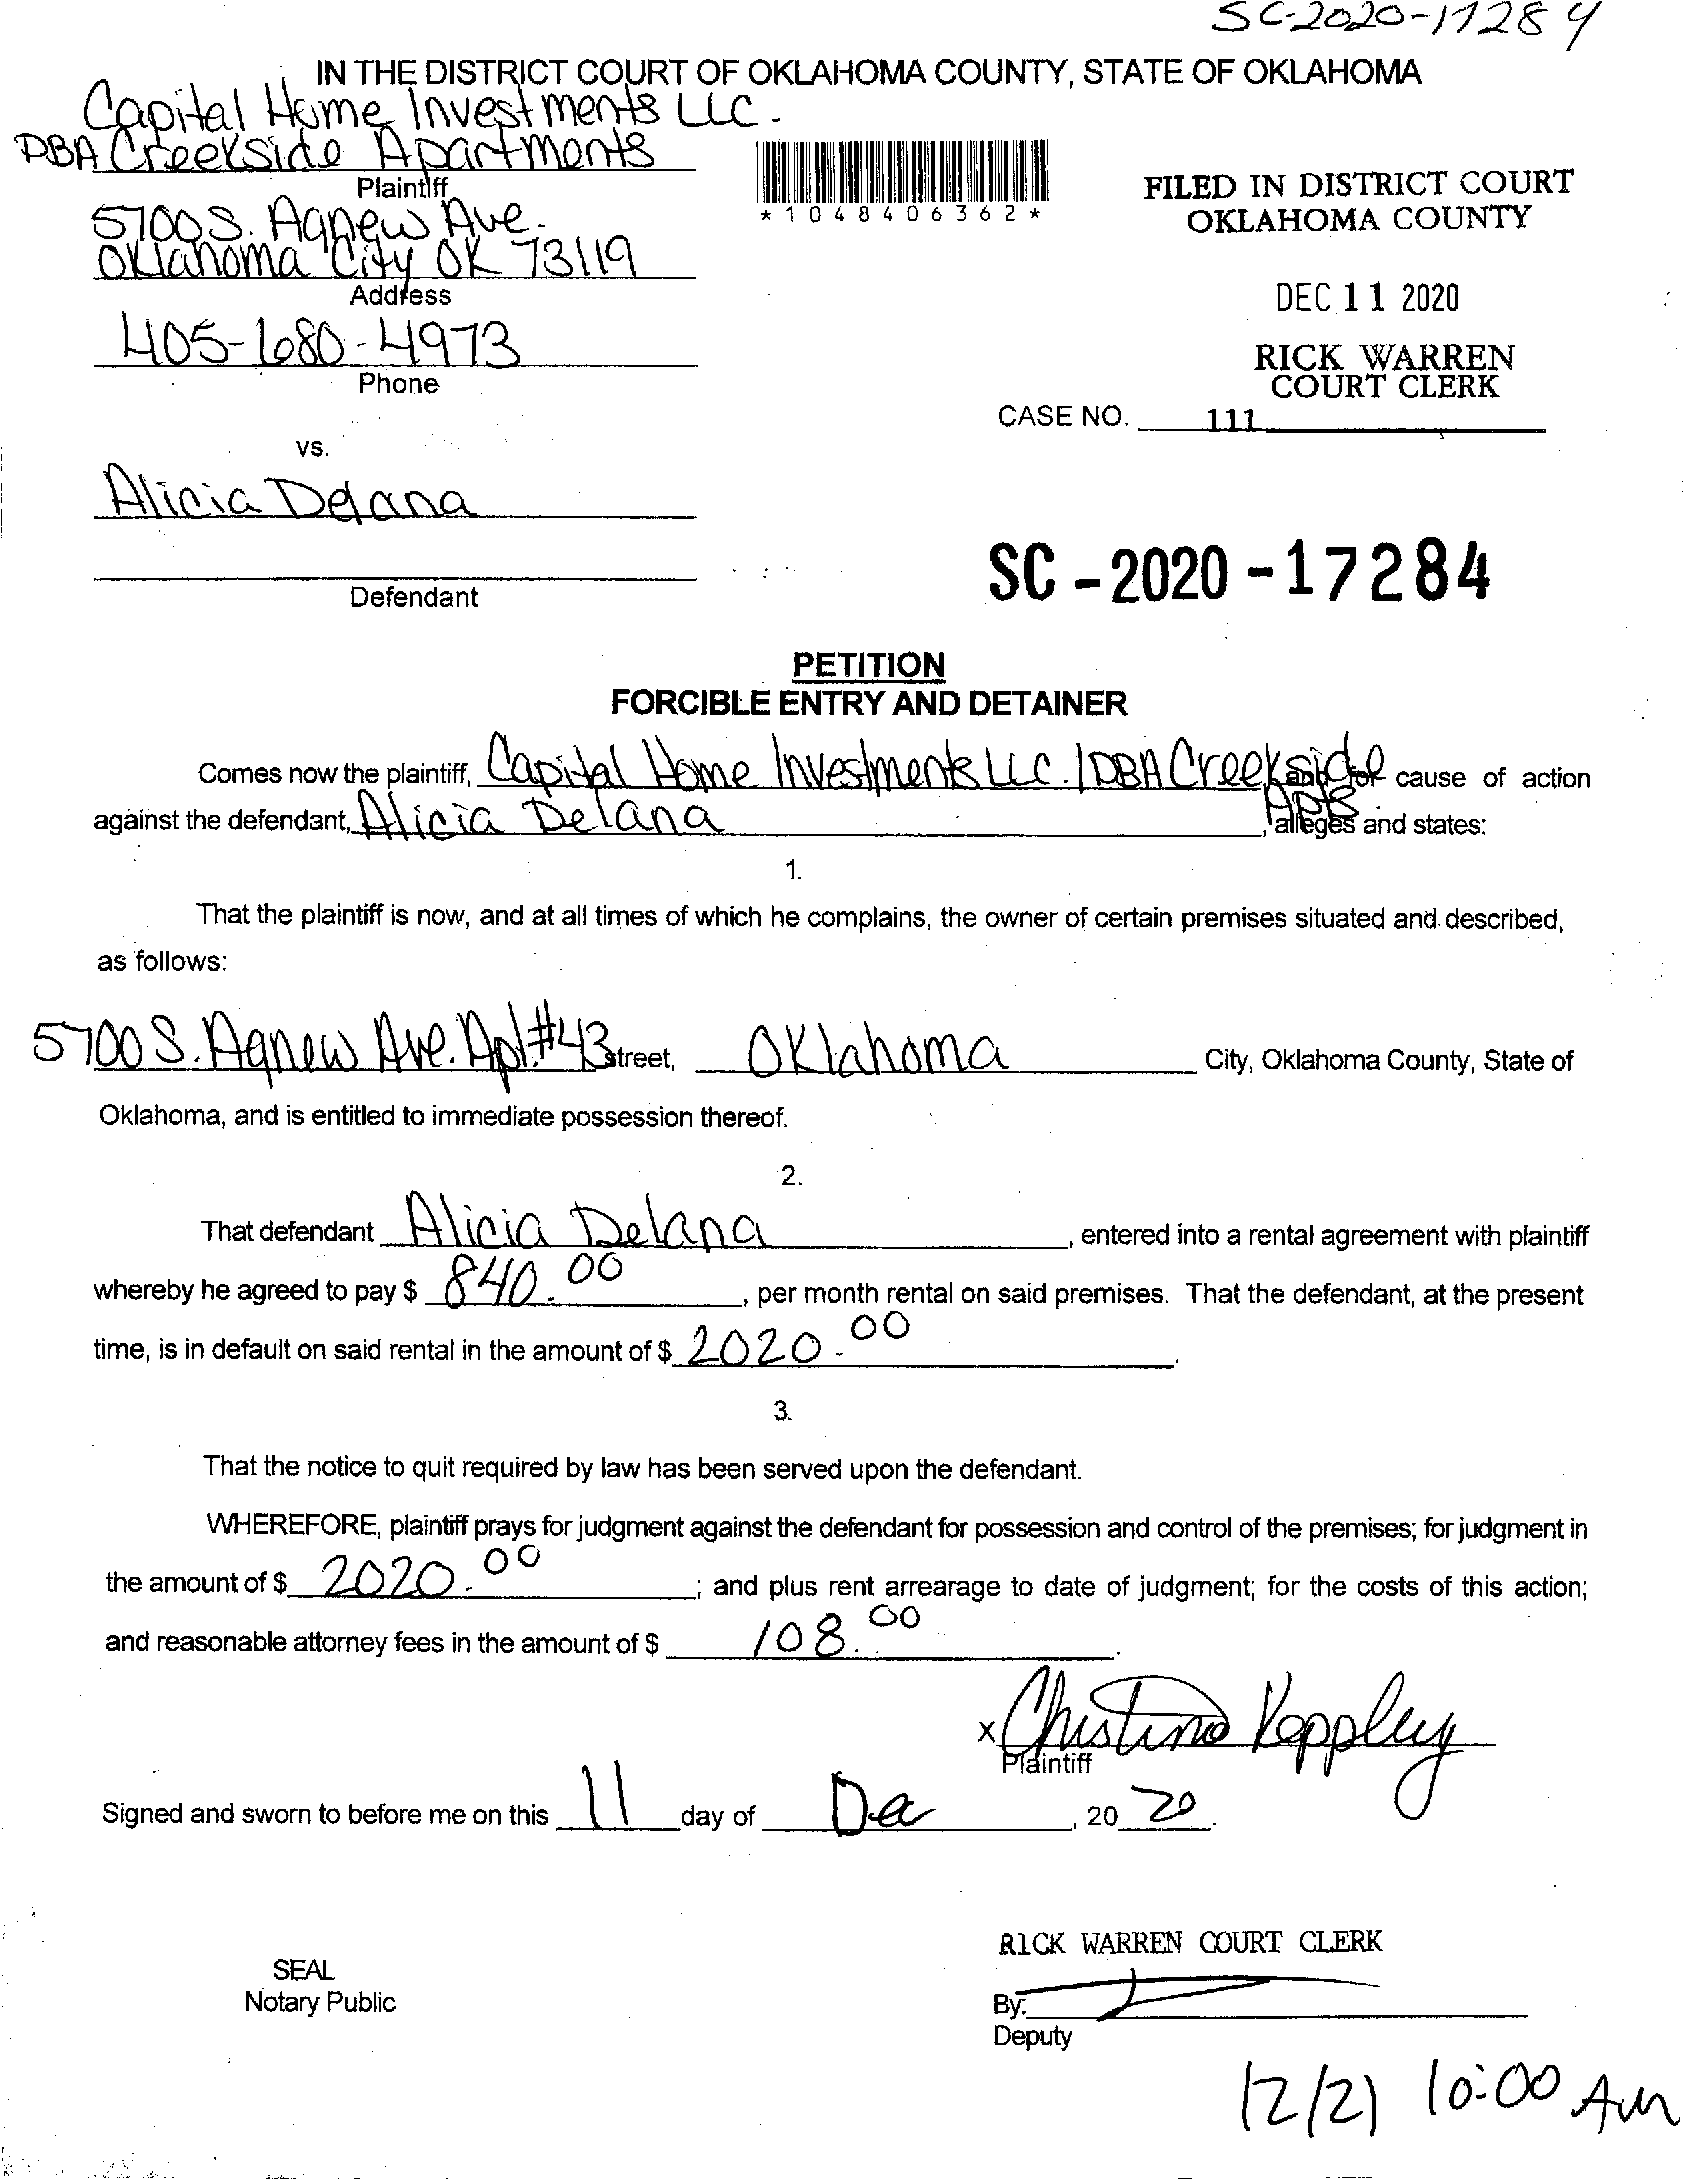 SC-2020-17284
IN THE DISTRICT COURT OF OKLAHOMA COUNTY, STATE OF OKLAHOMA
Capital Home Investments LLC.
DBA Creekside Apartments
Plaintiff
5700 S. Agnew Ave.
Oklahoma City OK 73119
Address
405-680-4973
Phone
*1048406362*
FILED IN DISTRICT COURT
OKLAHOMA COUNTY
DEC 11 2020
RICK WARREN
COURT CLERK
CASE NO. 111
vs.
Alicia Delana
Defendant
SC-2020-17284
PETITION
FORCIBLE ENTRY AND DETAINER
Comes now the plaintiff, Capital Home Investments LLC. / DBA Creekside and for cause of action
Apts
against the defendant, Alicia Delana, alleges and states:
1.
That the plaintiff is now, and at all times of which he complains, the owner of certain premises situated and described,
as follows:
5700 S. Agnew Ave. Apt.#43 street, Oklahoma City, Oklahoma County, State of
Oklahoma, and is entitled to immediate possession thereof.
2.
That defendant Alicia Delana, entered into a rental agreement with plaintiff
whereby he agreed to pay $ 840.00, per month rental on said premises. That the defendant, at the present
time, is in default on said rental in the amount of $ 2020.00.
3.
That the notice to quit required by law has been served upon the defendant.
WHEREFORE, plaintiff prays for judgment against the defendant for possession and control of the premises; for judgment in
the amount of $ 2020.00; and plus rent arrearage to date of judgment; for the costs of this action;
and reasonable attorney fees in the amount of $ 108.00.
x Christina Keppley
Plaintiff
Signed and sworn to before me on this 11 day of Dec, 20 20.
RICK WARREN COURT CLERK
SEAL
Notary Public
By:
Deputy
12/21 10:00 Am